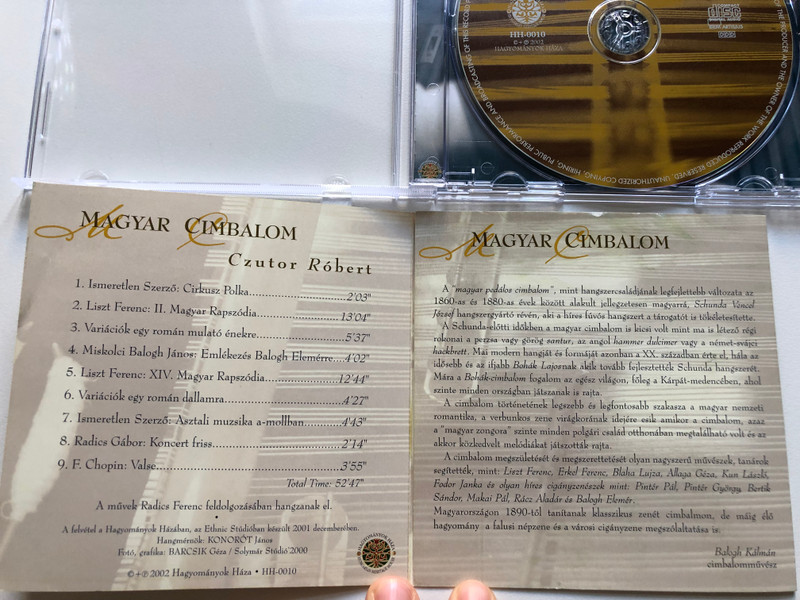 HH-0010
©+℗ 2002
HAGYOMÁNYOK HÁZA
COMPACT
disc
OF THE PRODUCER AND THE OWNER OF THE WORK REPRODUCED RESERVED. UNAUTHORIZED COPYING, HIRING, PUBLIC PERFORMANCE AND BROADCASTING OF THIS RECORD
MAGYAR CIMBALOM
Czutor Róbert
1. Ismeretlen Szerző: Cirkusz Polka...2'03"
2. Liszt Ferenc: II. Magyar Rapszódia...13'04"
3. Variációk egy román mulató énekre...5'37"
4. Miskolci Balogh János: Emlékezés Balogh Elemérre...4'02"
5. Liszt Ferenc: XIV. Magyar Rapszódia...12'44"
6. Variációk egy román dallamra...4'27"
7. Ismeretlen Szerző: Asztali muzsika a-mollban...4'43"
8. Radics Gábor: Koncert friss...2'14"
9. F. Chopin: Valse...3'55"
Total Time: 52'47"
A művek Radics Ferenc feldolgozásában hangzanak el.
A felvétel a Hagyományok Házában, az Ethnic Stúdióban készült 2001 decemberében.
Hangmérnök: KONORÓT János
Fotó, grafika: BARCSIK Géza / Solymár Stúdió'2000
©+℗ 2002 Hagyományok Háza • HH-0010
MAGYAR CIMBALOM
A "magyar pedálos cimbalom", mint hangszercsaládjának legfejlettebb változata az
1860-as és 1880-as évek között alakult jellegzetesen magyarrá, Schunda Vencel
József hangszergyártó révén, aki a híres fúvós hangszert a tárogatót is tökéletesítette.
A Schunda-előtti időkben a magyar cimbalom is kicsi volt mint ma is létező régi
rokonai a perzsa vagy görög santur, az angol hammer dulcimer vagy a német-svájci
hackbrett. Mai modern hangját és formáját azonban a XX. században érte el, hála az
idősebb és az ifjabb Bohák Lajosnak akik tovább fejlesztették Schunda hangszerét.
Mára a Bohák-cimbalom fogalom az egész világon, főleg a Kárpát-medencében, ahol
szinte minden országban játszanak is rajta.
A cimbalom történetének legszebb és legfontosabb szakasza a magyar nemzeti
romantika, a verbunkos zene virágkorának idejére esik amikor a cimbalom, azaz
a "magyar zongora" szinte minden polgári család otthonában megtalálható volt és az
akkor közkedvelt melódiákat játszották rajta.
A cimbalom megszületését és megszerettetését olyan nagyszerű művészek, tanárok
segítették, mint: Liszt Ferenc, Erkel Ferenc, Blaha Lujza, Allaga Géza, Kun László,
Fodor Janka és olyan híres cigányzenészek mint: Pintér Pál, Pintér György, Bertik
Sándor, Makai Pál, Rácz Aladár és Balogh Elemér.
Magyarországon 1890-től tanítanak klasszikus zenét cimbalmon, de máig élő
hagyomány a falusi népzene és a városi cigányzene megszólaltatása is.
Balogh Kálmán
cimbalomművész